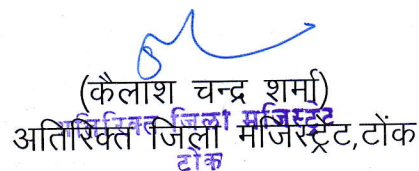 (कैलाश चन्द्र शर्मा)
अतिरिक्त जिला मजिस्ट्रेट
अतिरिक्त जिला मजिस्ट्रेट,टोंक
टोंक